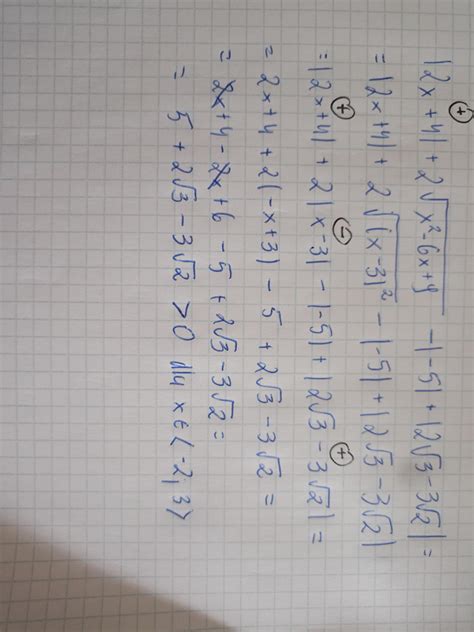 |2x+4|+2√x²-6x+9 -|-5|+|2√3-3√2|=
=|2x+4|+2√(x-3)² -|-5|+|2√3-3√2|
=|2x+4|+2|x-3|-|-5|+|2√3-3√2|=
=2x+4+2(-x+3)-5+2√3-3√2=
=2x+4-2x+6-5+2√3-3√2=
=5+2√3-3√2>0 dla x∈⟨-2,3⟩